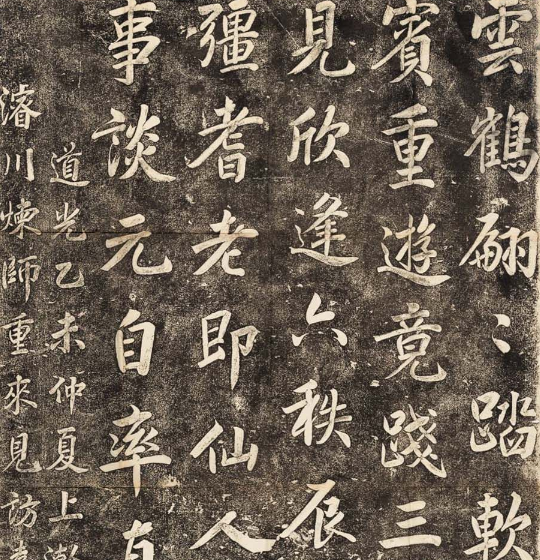 雲鶴翩〻踏軟
賓重遊竟踐三
見欣逢六秩辰
彊耆老即仙人
事談元自率真
道光乙未仲夏上澣
濬川煉師重來見訪